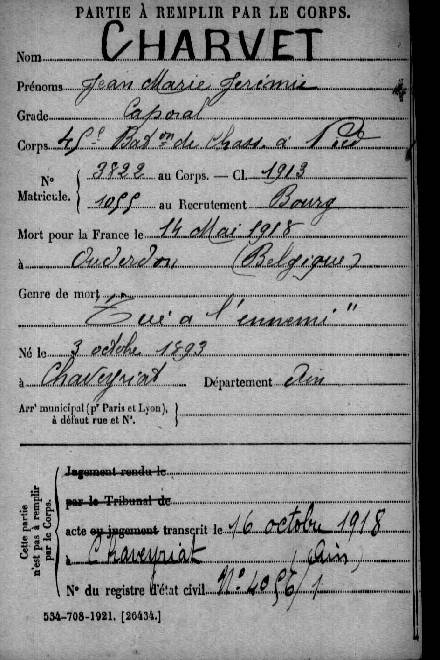 PARTIE À REMPLIR PAR LE CORPS.
Nom CHARVET
Prénoms Jean Marie Jérémie
Grade Caporal
Corps 45e Baton de Chass. à Pied
N° Matricule. { 3822 au Corps. — Cl. 1913
1055 au Recrutement Bourg
Mort pour la France le 14 Mai 1918
à Ouderdon (Belgique)
Genre de mort
"Tué à l'ennemi"
Né le 3 octobre 1893
à Chaveyriat Département Ain
Arrt municipal (pr Paris et Lyon), à défaut rue et N°. }
Cette partie n'est pas à remplir par le Corps.
Jugement rendu le
par le Tribunal de
acte ou jugement transcrit le 16 octobre 1918
à Chaveyriat (Ain)
N° du registre d'état civil N° 4056/1
534-708-1921. [26434.]